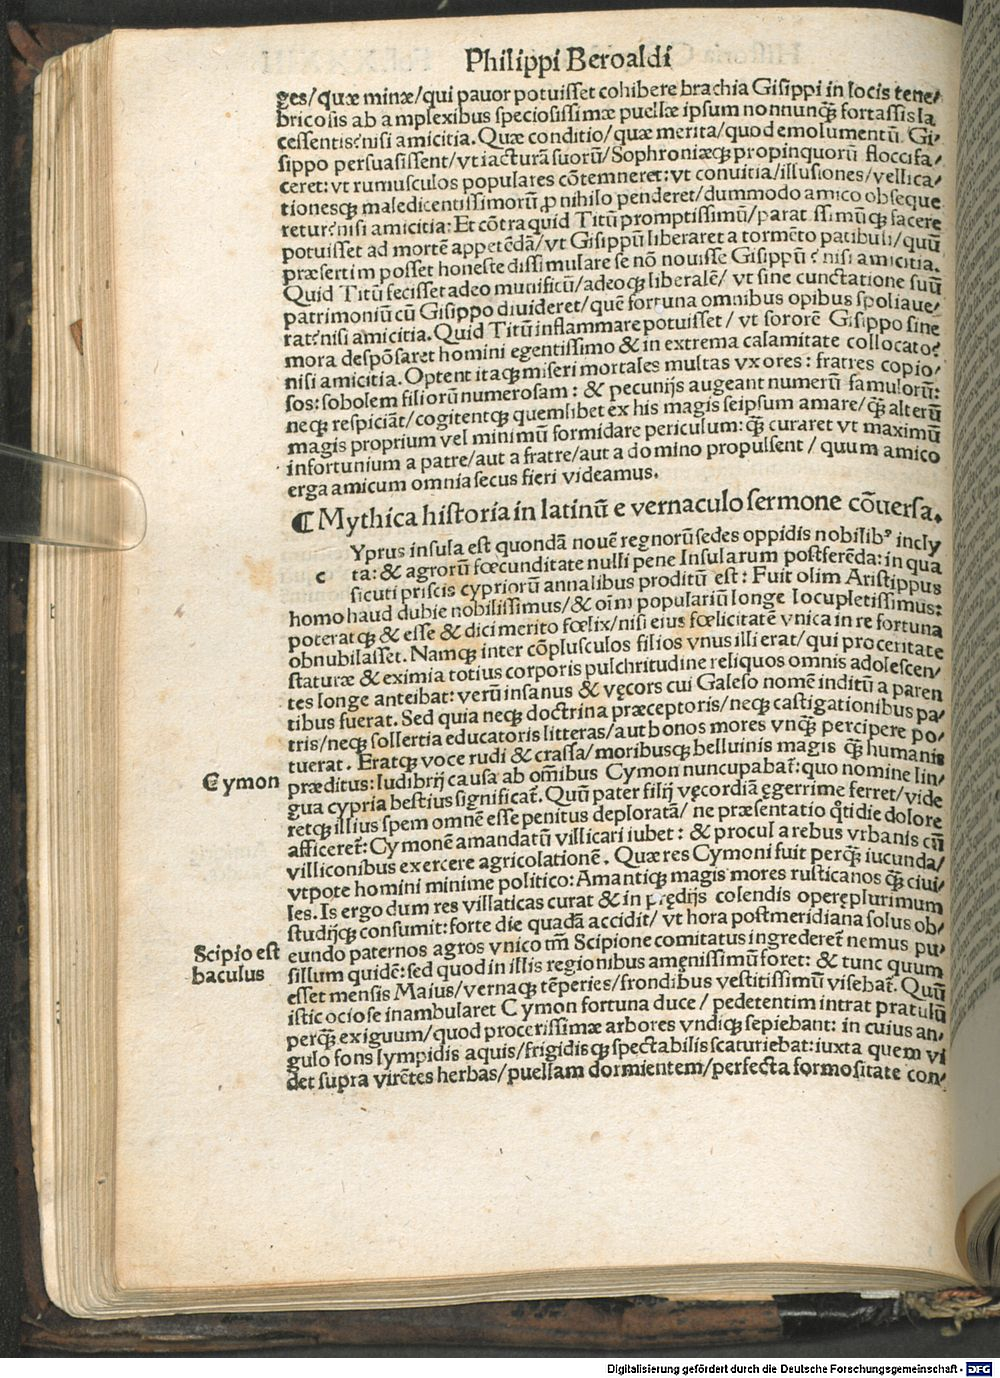 Philippi Beroaldi
ges/quæ minæ/qui pauor potuiſſet cohibere brachia Giſippi in locis tene⸗
bricoſis ab amplexibus ſpecioſiſſimæ puellæ ipſum nonnunꝙ̃ fortaſſis la
ceſſentis:niſi amicitia. Quæ conditio/quæ merita/quod emolumentũ Gi⸗
ſippo perſuaſiſſent/vt iacturã ſuorũ/Sophroniæꝙ propinquorũ floccifa⸗
ceret: vt rumuſculos populares cõtemneret: vt conuitia/illuſiones/vellica⸗
tionesꝙ maledicentiſſimorũ ꝓ nihilo penderet/dummodo amico obſeque
retur:niſi amicitia: Et cõtra quid Titũ promptiſſimũ/parat ſſimũꝙ facere
potuiſſet ad mortẽ appetẽdã/vt Giſippũ liberaret a tormẽto patibuli/quũ
præſertim poſſet honeſte diſſimulare ſe nõ nouiſſe Giſippũ : niſi amicitia.
Quid Titũ feciſſet adeo munificũ/adeoꝙ liberalẽ/ vt ſine cunctatione ſuũ
patrimoniũ cũ Giſippo diuideret/quẽ fortuna omnibus opibus ſpoliaue⸗
rat:niſi amicitia. Quid Titũ inflammare potuiſſet/ vt ſororẽ Giſippo ſine
mora deſpõſaret homini egentiſſimo & in extrema calamitate collocato:
niſi amicitia. Optent itaꝙ miſeri mortales multas vxores: fratres copio⸗
ſos: ſobolem filiorũ numeroſam: & pecunijs augeant numerũ famulorũ:
neꝙ reſpiciãt/cogitentꝙ quemlibet ex his magis ſeipſum amare/ꝙ̃ alterũ
magis proprium vel minimũ formidare periculum: ꝙ̃ curaret vt maximũ
infortunium a patre/aut a fratre/aut a domino propulſent/ quum amico
erga amicum omnia ſecus fieri videamus.
¶ Mythica hiſtoria in latinũ e vernaculo ſermone cõuerſa.
c Yprus inſula eſt quondã nouẽ regnorũ ſedes oppidis nobilibꝰ incly
ta: & agrorũ fœcunditate nulli pene Inſularum poſtferẽda: in qua
ſicuti priſcis cypriorũ annalibus proditũ eſt: Fuit olim Ariſtippus
homo haud dubie nobiliſſimus/& oĩm populariũ longe locupletiſſimus:
poteratꝙ & eſſe & dici merito fœlix/niſi eius fœlicitatẽ vnica in re fortuna
obnubilaſſet. Namꝙ inter cõpluſculos filios vnus illi erat/qui proceritate
ſtaturæ & eximia totius corporis pulchritudine reliquos omnis adoleſcen⸗
tes longe anteibat: verũ inſanus & vęcors cui Galeſo nomẽ inditũ a paren
tibus fuerat. Sed quia neꝙ doctrina præceptoris/neꝙ caſtigationibus pa⸗
tris/neꝙ ſollertia educatoris litteras/aut bonos mores vnꝙ̃ percipere po⸗
tuerat. Eratꝙ voce rudi & craſſa/moribusꝙ belluinis magis ꝙ̃ humanis
præditus: ludibrij cauſa ab om̃ibus Cymon nuncupabat̃: quo nomine lin⸗
gua cypria beſtius ſignificat̃. Quũ pater filij vęcordiã ęgerrime ferret/vide
retꝙ illius ſpem omnẽ eſſe penitus deploratã/ ne præſentatio q̃tidie dolore
afficeret̃: Cymonẽ amandatũ villicari iubet: & procul a rebus vrbanis cũ
villiconibus exercere agricolationẽ. Quæ res Cymoni fuit perꝙ̃ iucunda/
vtpote homini minime politico: Amantiꝙ magis mores ruſticanos ꝙ̃ ciui⸗
les. Is ergo dum res villaticas curat & in prędijs colendis operęplurimum
ſtudijꝙ conſumit: forte die quadã accidit/ vt hora poſtmeridiana ſolus ob⸗
eundo paternos agros vnico tm̃ Scipione comitatus ingrederet̃ nemus pu⸗
ſillum quidẽ: ſed quod in illis regionibus amęniſſimũ foret: & tunc quum
eſſet menſis Maius/vernaꝙ tẽperies/frondibus veſtitiſſimũ viſebat̃. Quũ
iſtic ocioſe inambularet Cymon fortuna duce/ pedetentim intrat pratulũ
perꝙ̃ exiguum/quod proceriſſimæ arbores vndiꝙ ſepiebant: in cuius an⸗
gulo fons lympidis aquis/frigidisꝙ ſpectabilis ſcaturiebat: iuxta quem vi
det ſupra virẽtes herbas/puellam dormientem/perfecta formoſitate con⸗
Cymon
Scipio eſt
baculus
Digitalisierung gefördert durch die Deutsche Forschungsgemeinschaft - DFG